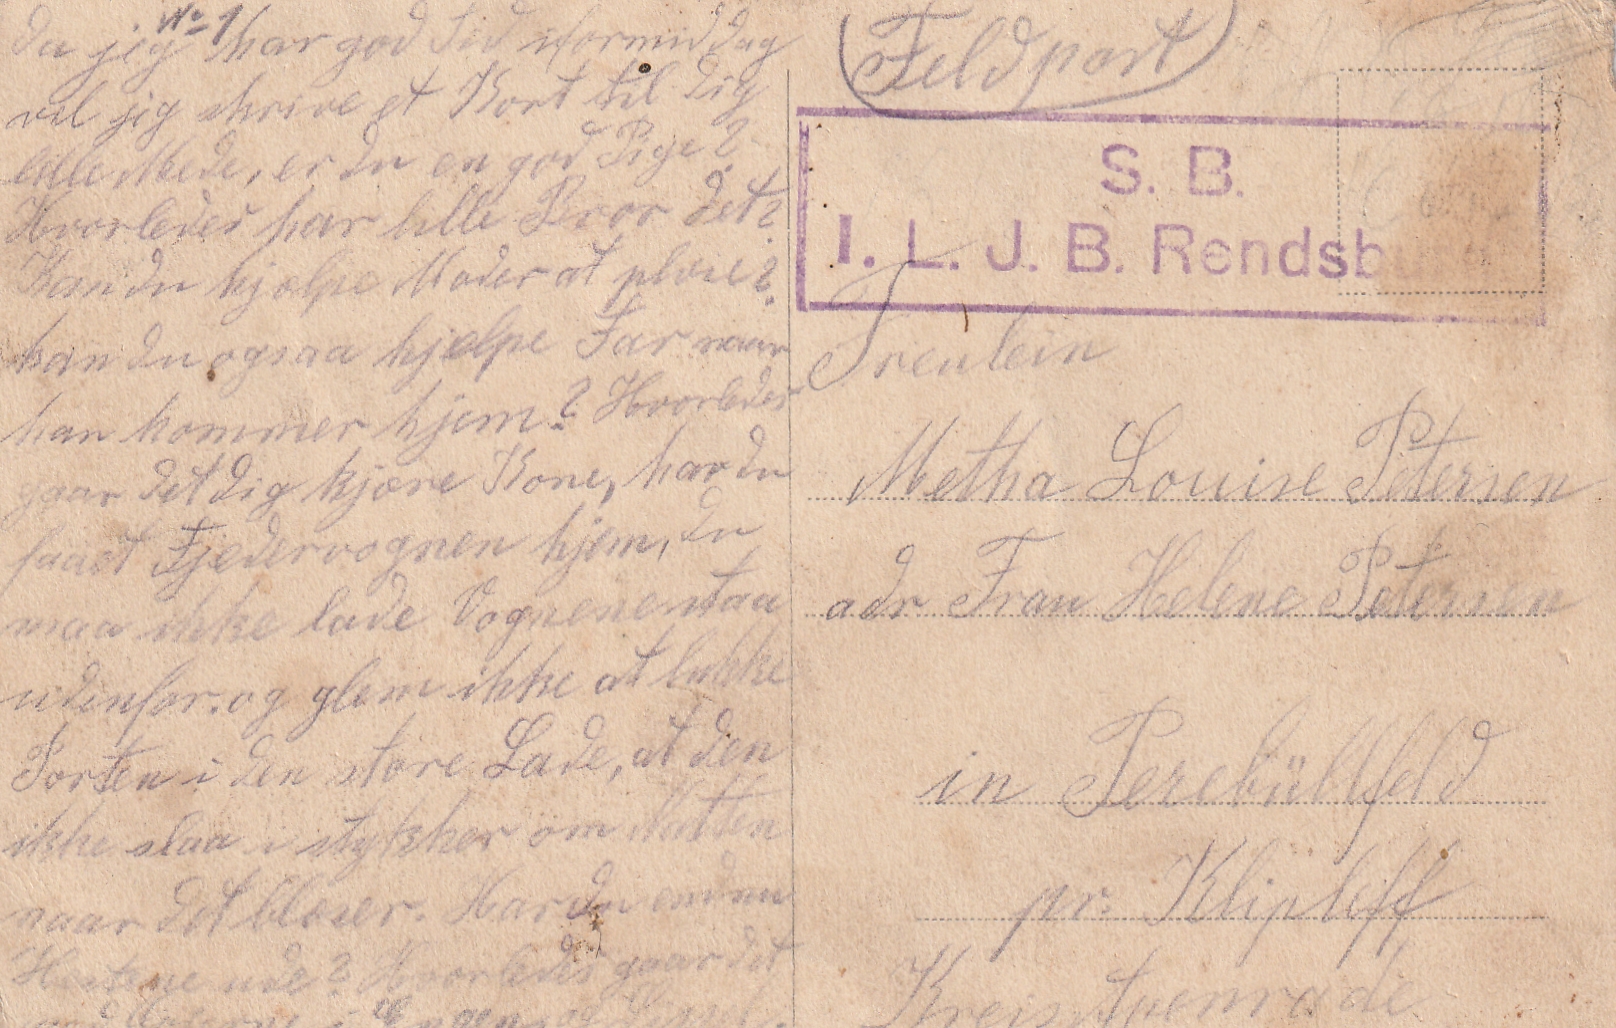 No 1
da jeg har god Tid iformiddag
vil jeg skrive et Kort til dig
lille Mede, er du en god Pige?
Hvorledes har lille Bror det?
Kan du hjælpe Moder at pløie?
kan du ogsaa hjelpe Far naar
han kommer hjem? Hvorledes
gaar det dig kjære Kone, har du
faaet Fjedervognen hjem, du
maa ikke lade Vognene staa
udenfor. og glem ikke at lukke
Porten i den store Lade, at den
ikke slaa i stykker om Natten
naar det blæser. Har du endnu
Hestene ude? Hvorledes gaar det
i Engen og
Feldpost
S. B.
I. L. J. B. Rendsbu
Freulein
Metha Louise Petersen
adr Frau Helene Petersen
in Perebüllfeld
pr: Klipleff
Kreis Apenrade